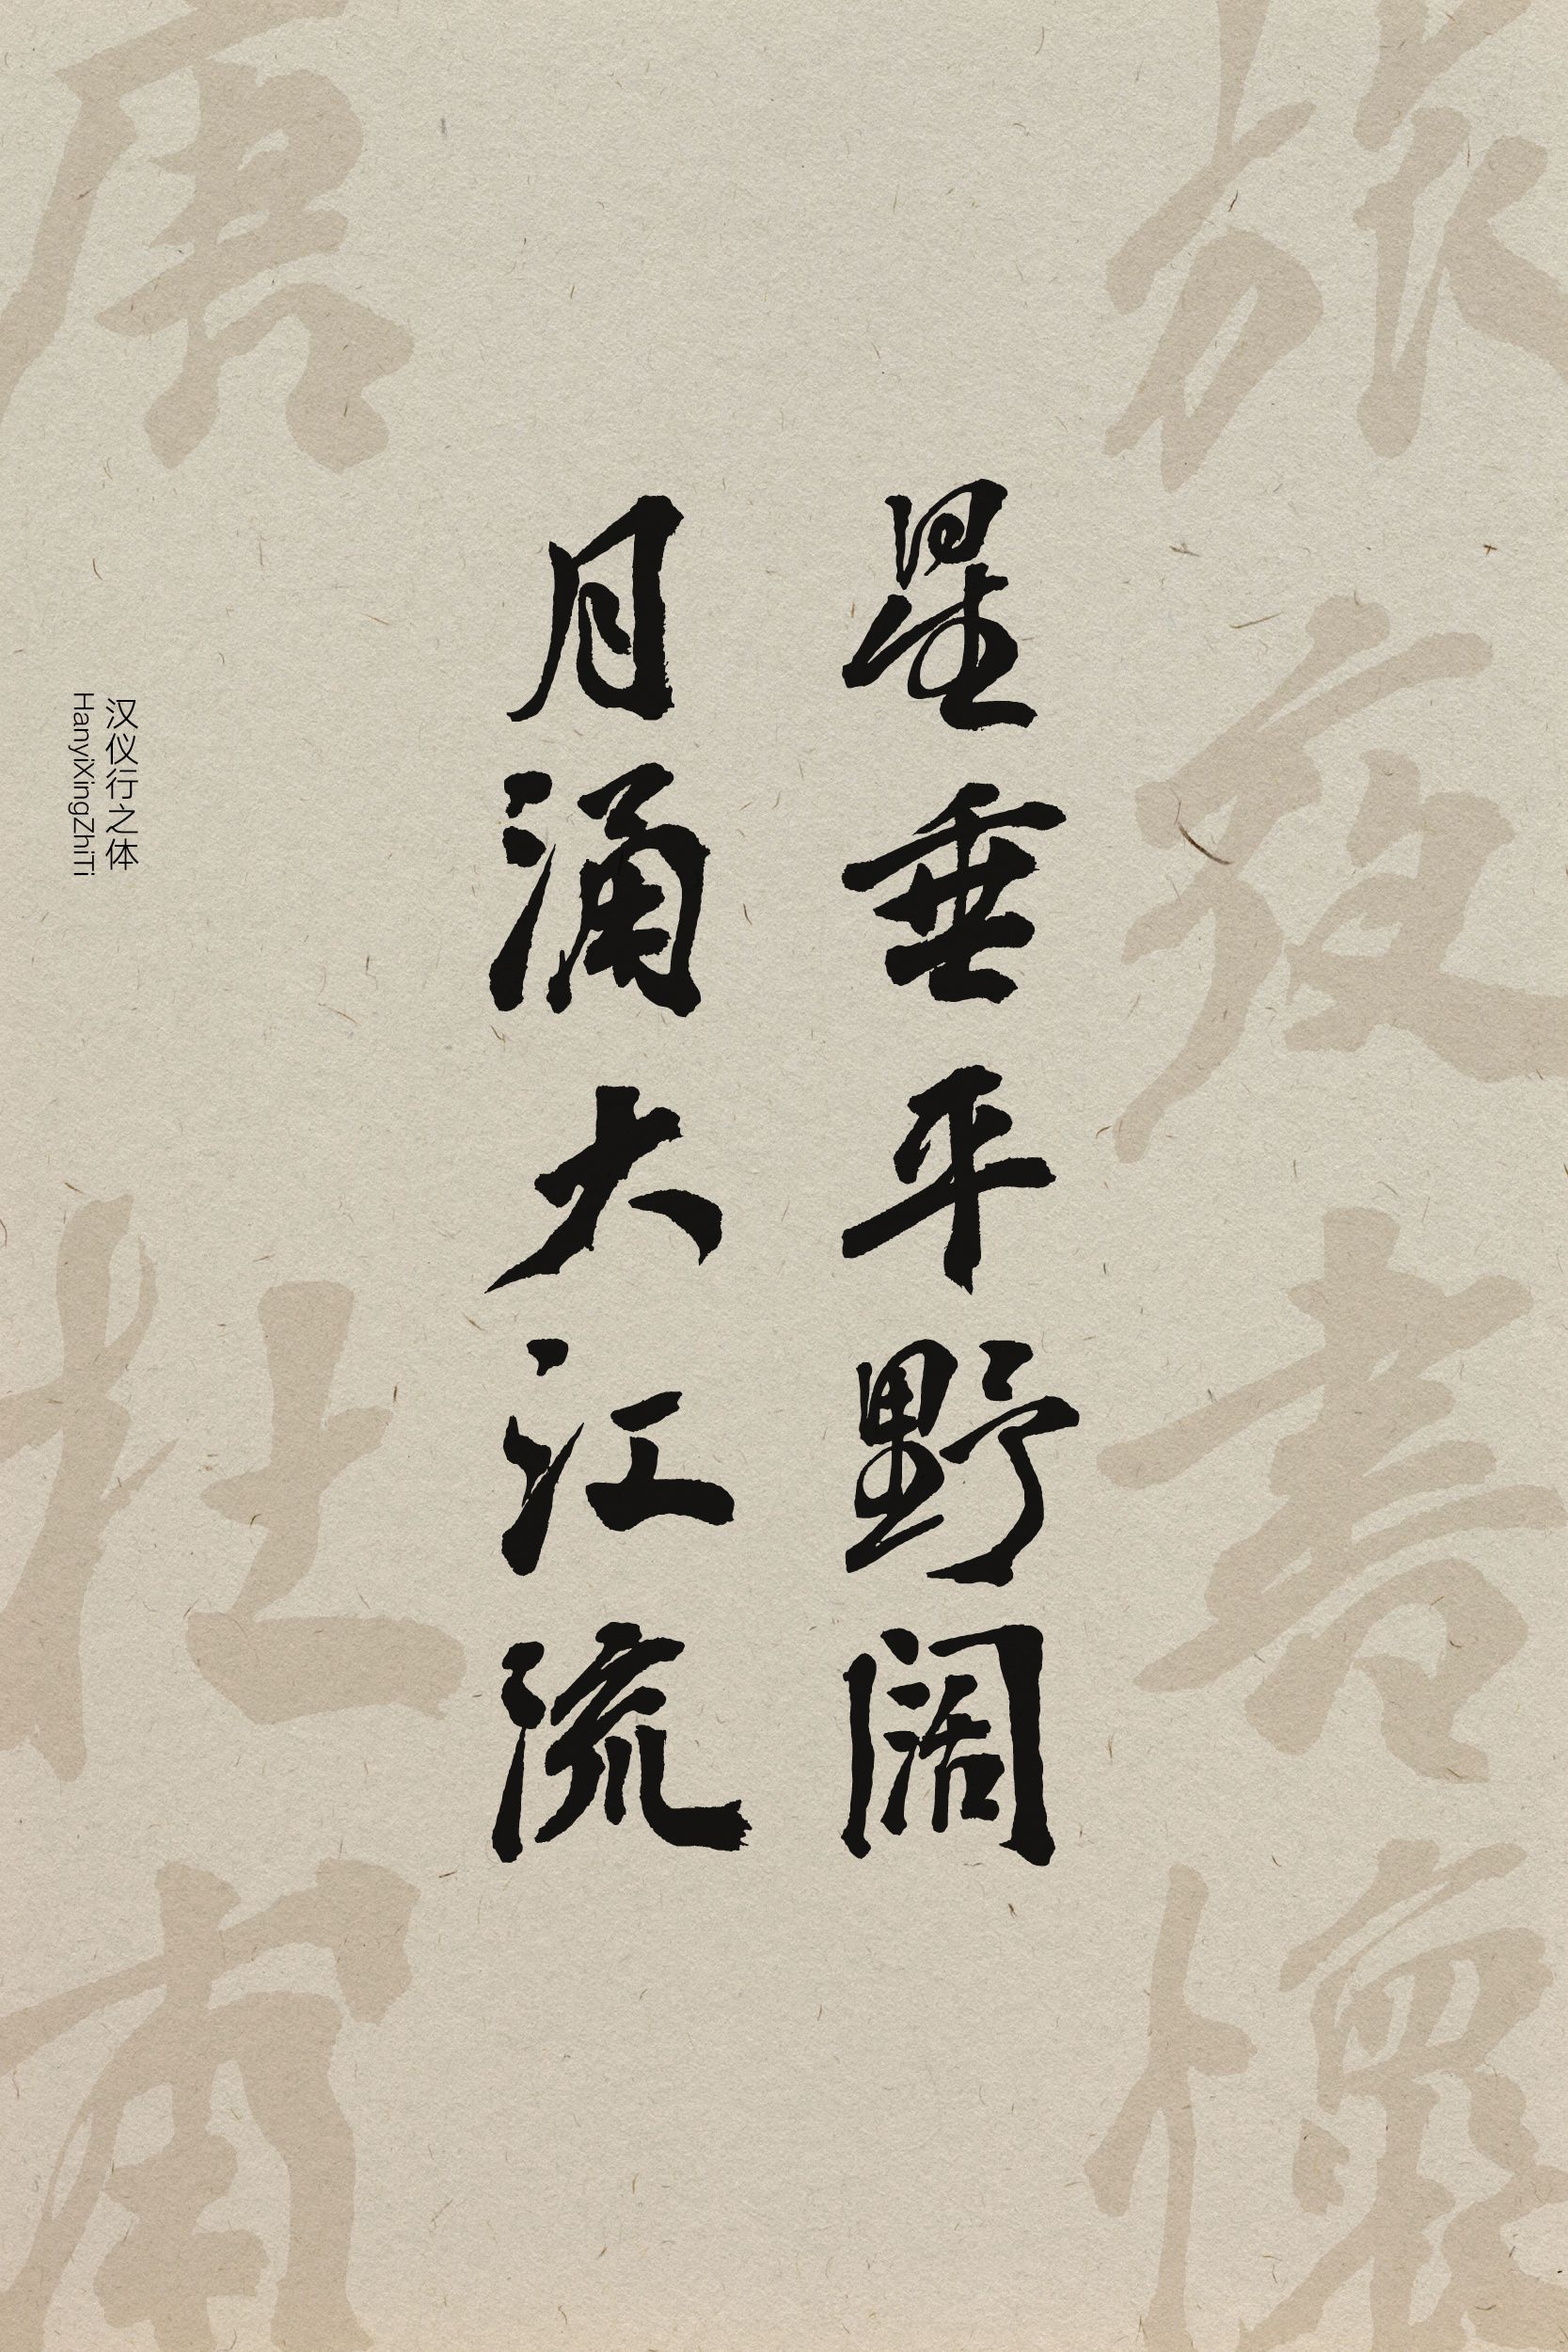 旅夜書懷
星垂平野阔
月涌大江流
汉仪行之体
HanyiXingZhiTi
唐
杜甫